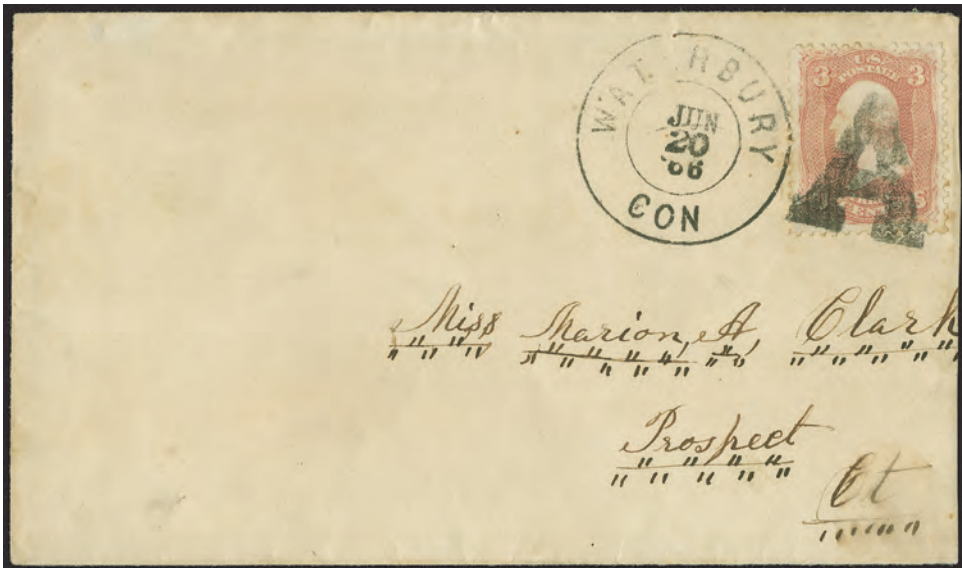 WAT RBURY
JUN
20
'66
CON
U.S.
POSTAGE
3 3
A
Miss Marion, A, Clark
Prospect
Ct